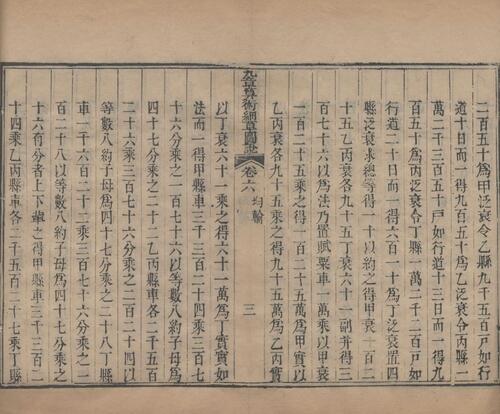 二百五十爲甲泛衰令乙縣九千五百戸如行
道十日而一得九百五十爲乙泛衰令丙縣一
萬二千三百五十戸如行道十三日而一得九
百五十爲丙泛衰令丁縣一萬二千二百戸如
行道二十日而一得六百一十爲丁泛衰置四
縣泛衰求總等得一十以約之得甲衰一百二
十五乙丙衰各九十五丁衰六十一副并得三
百七十六爲法乃置賦粟車一萬乘以甲衰
一百二十五乘之得一百二十五萬爲甲實以
乙丙衰各九十五乘之得九十五萬爲乙丙實
九章算術細草圖說 卷六 均輸 三
以丁衰六十一乘之得六十一萬爲丁實實如
法而一得甲縣車三千三百二十四乘三百七
十六分乘之一百七十六以等數八約子母爲
四十七分乘之二十二乙丙縣車各二千五百
二十六乘三百七十六分乘之二百二十四以
等數八約子母爲四十七分乘之二十八丁縣
車一千六百二十二乘三百七十六分乘之一
百二十八以等數八約子母爲四十七分乘之
十六有分者上下輩之得甲縣車三千三百二
十四乘乙丙縣車各二千五百二十七乘丁縣